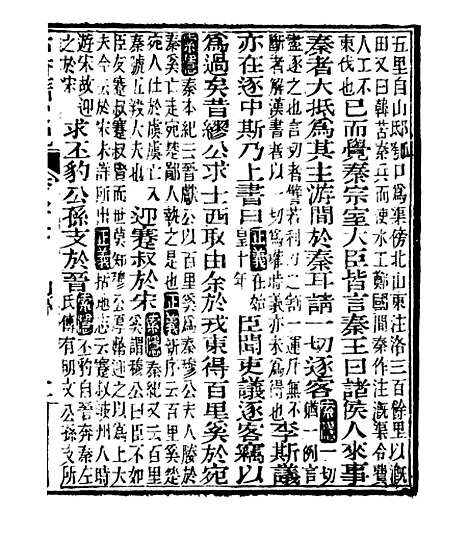 五里自山邸瓠口為渠傍北山東注洛三百餘里以溉
田又曰韓苦秦兵而使水工鄭國間秦作注溉渠令費
人工不東伐也已而覺秦宗室大臣皆言秦王曰諸侯人來事
秦者大抵為其主游間於秦耳請一切逐客索隱一切猶一例言
盡逐之也言切者譬若利刀之割一運斤無不
斷者解漢書者以一切為權時義亦未為得也李斯議
亦在逐中斯乃上書曰正義在始皇十年臣聞吏議逐客竊以
為過矣昔繆公求士西取由余於戎東得百里奚於宛
索隱秦本紀云晉獻公以百里奚為秦穆公夫人媵於
秦奚亡走宛楚鄙人執之是也正義新序云百里奚楚
宛人仕於虞虞亡入秦號五羖大夫也迎蹇叔於宋索隱秦紀又云百里奚謂穆公曰臣不如
臣友蹇叔蹇叔賢而世莫知穆公厚幣迎之以為上大
夫今云於宋未詳所出正義括地志云蹇叔岐州人時
游宋故迎之於宋求丕豹公孫支於晉索隱丕豹自晉奔秦左氏傳有明文公孫支所